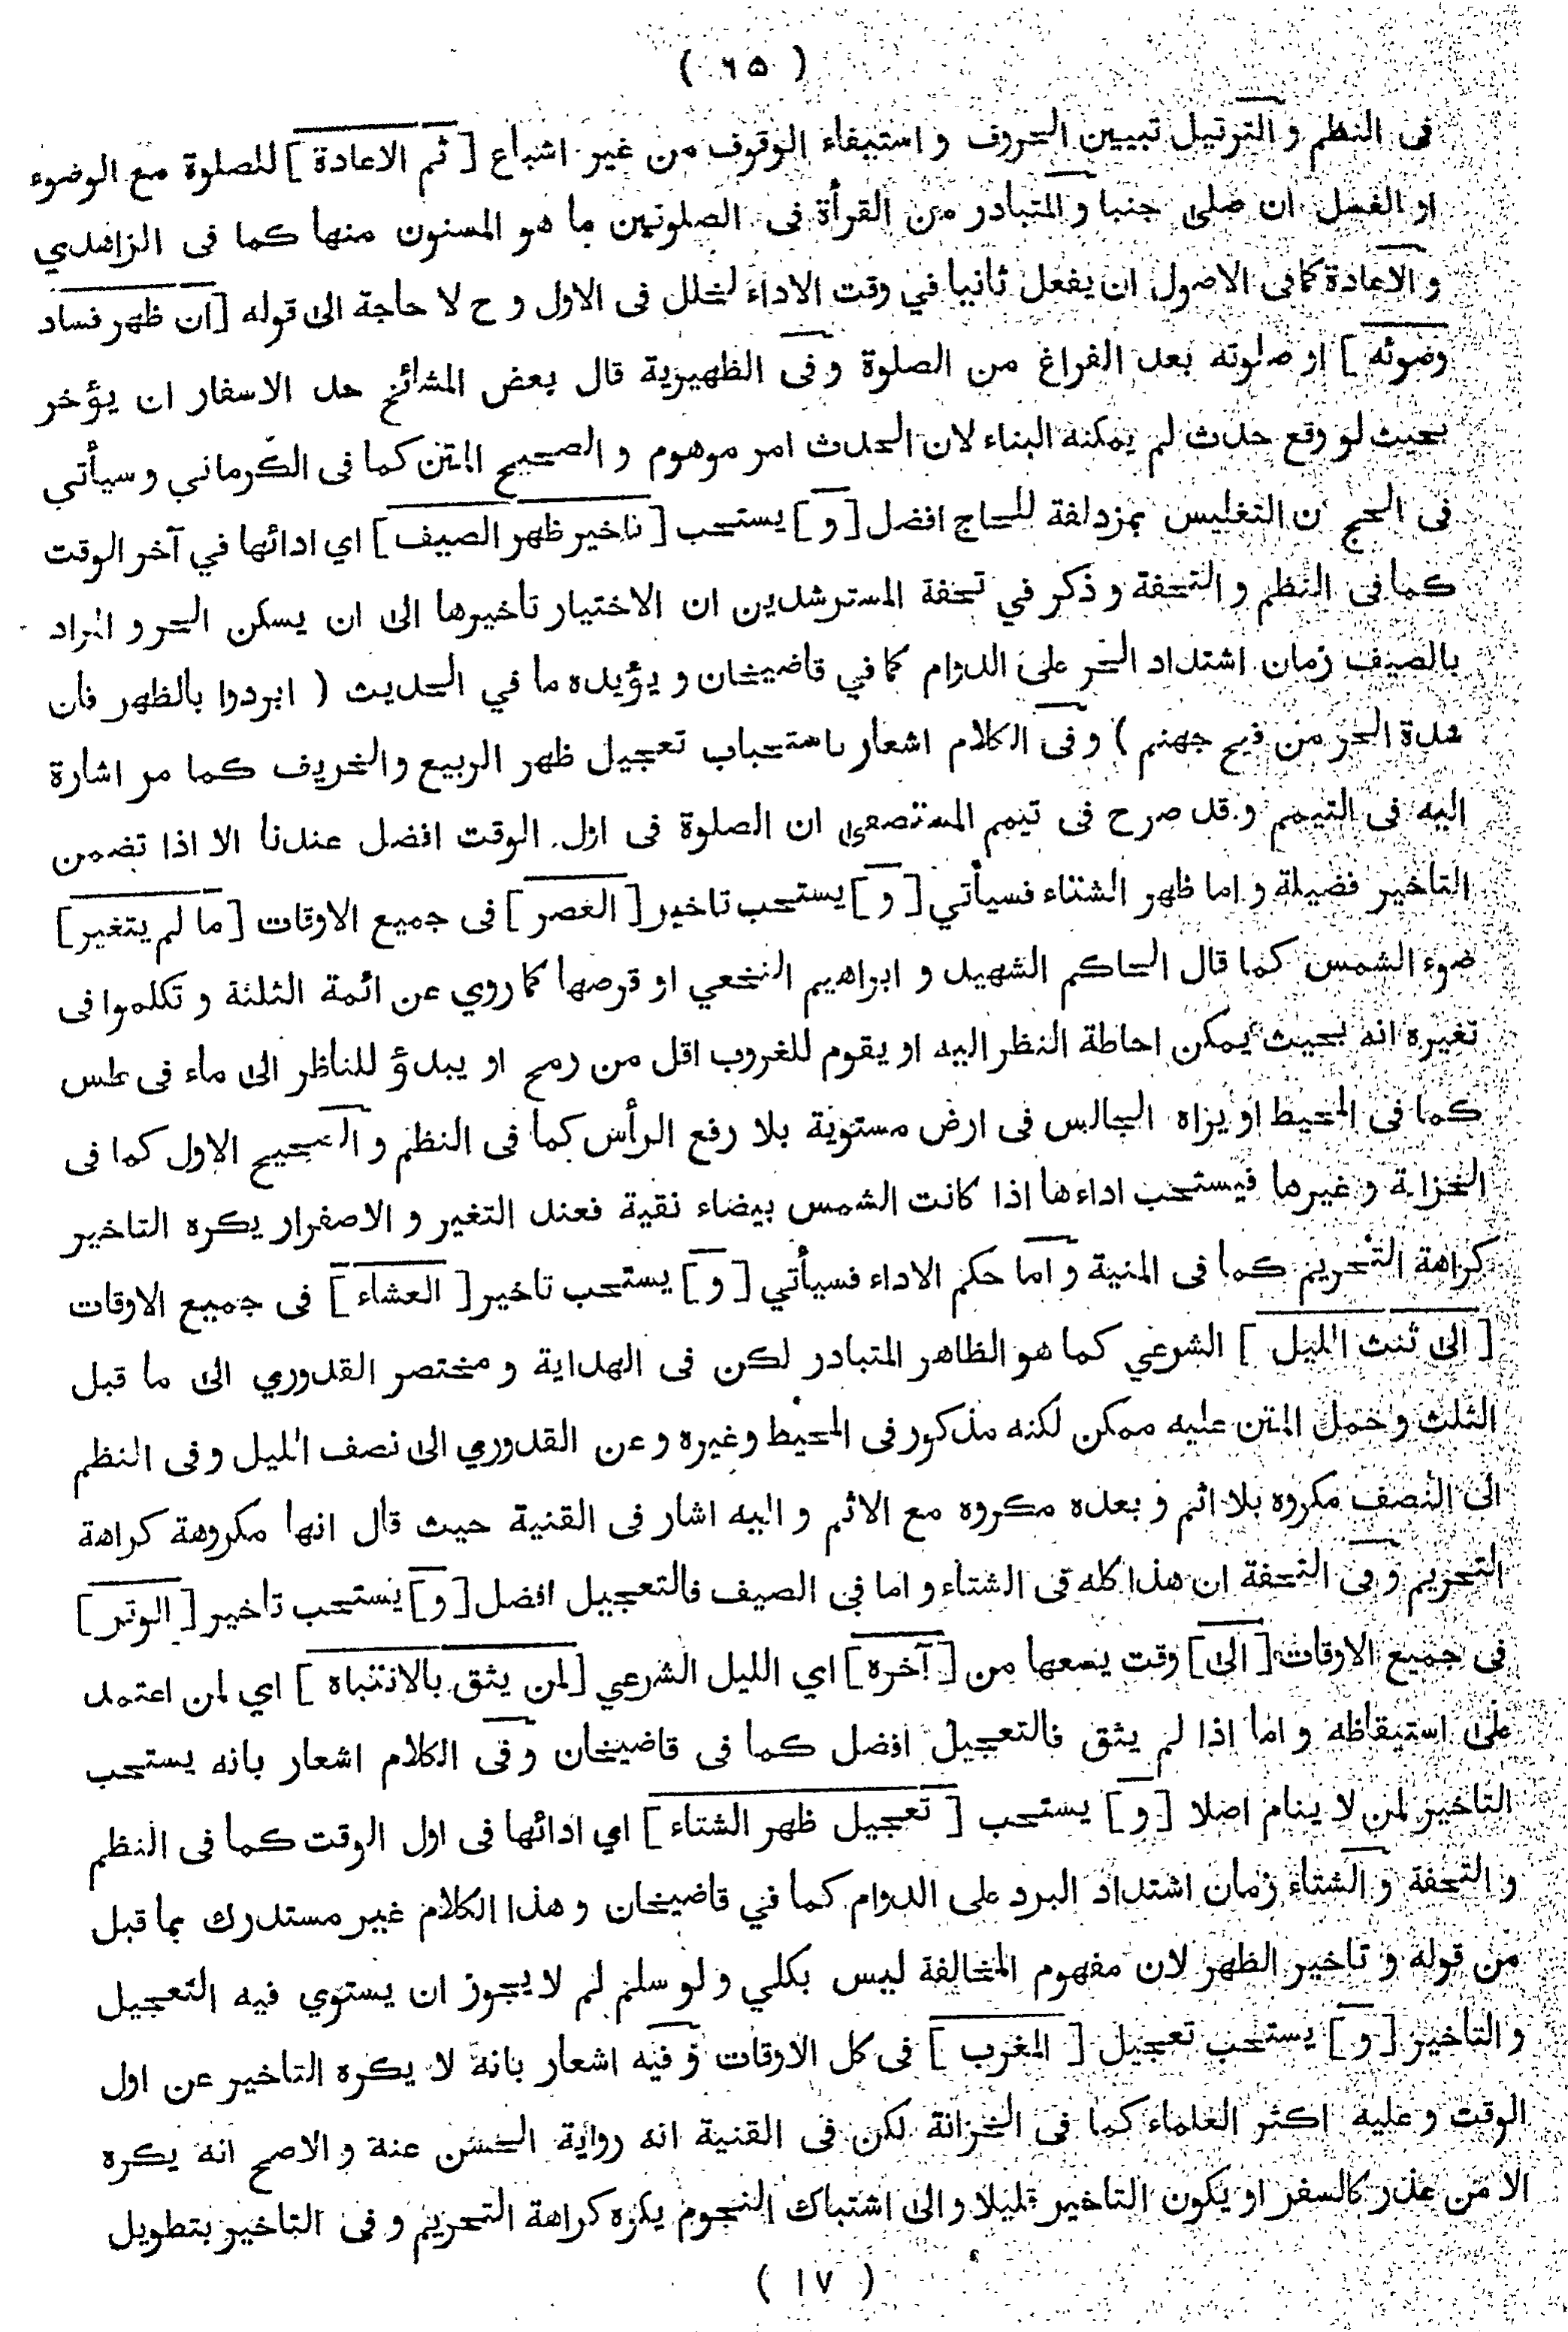 ( ٦۵ )
فى النظم و الترتيل تبيين الحروف و استيفاء الوقوف من غير اشباع [ ثم الاعادة ] للصلوة مع الوضوء
او الغسل ان صلى جنبا و المتبادر من القرأة فى الصلوتين ما هو المسنون منها كما فى الزاهدي
و الاعادة كما فى الاصول ان يفعل ثانيا في وقت الاداء لخلل فى الاول و ح لا حاجة الى قوله [ ان ظهر فساد
وضوئه ] او صلوته بعد الفراغ من الصلوة و فى الظهيرية قال بعض المشائخ حد الاسفار ان يؤخر
بحيث لو وقع حدث لم يمكنه البناء لان الحدث امر موهوم و الصحيح المتن كما فى الكرماني و سيأتي
فى الحج ان التغليس بمزدلفة للحاج افضل [ و ] يستحب [ تاخير ظهر الصيف ] اي ادائها في آخر الوقت
كما فى النظم و التحفة و ذكر في تحفة المسترشدين ان الاختيار تاخيرها الى ان يسكن الحر و المراد
بالصيف زمان اشتداد الحر على الدوام كما في قاضيخان و يؤيده ما في الحديث ( ابردوا بالظهر فان
شدة الحر من فيح جهنم ) و فى الكلام اشعار باستحباب تعجيل ظهر الربيع و الخريف كما مر اشارة
اليه فى التيمم و قد صرح فى تيمم المستصفى ان الصلوة فى اول الوقت افضل عندنا الا اذا تضمن
التاخير فضيلة و اما ظهر الشتاء فسيأتي [ و ] يستحب تاخير [ العصر ] فى جميع الاوقات [ ما لم يتغير ]
ضوء الشمس كما قال الحاكم الشهيد و ابراهيم النخعي او قرصها كما روي عن ائمة الثلثة و تكلموا فى
تغيره انه بحيث يمكن احاطة النظر اليه او يقوم للغروب اقل من رمح او يبدؤ للناظر الى ماء فى طس
كما فى المحيط او يراه الجالس فى ارض مستوية بلا رفع الرأس كما فى النظم و الصحيح الاول كما فى
الخزانة و غيرها فيستحب اداءها اذا كانت الشمس بيضاء نقية فعند التغير و الاصفرار يكره التاخير
كراهة التحريم كما فى المنية و اما حكم الاداء فسيأتي [ و ] يستحب تاخير [ العشاء ] فى جميع الاوقات
[ الى ثلث الليل ] الشرعي كما هو الظاهر المتبادر لكن فى الهداية و مختصر القدوري الى ما قبل
الثلث و حمل المتن عليه ممكن لكنه مذكور فى المحيط و غيره و عن القدوري الى نصف الليل و فى النظم
الى النصف مكروه بلا اثم و بعده مكروه مع الاثم و اليه اشار فى القنية حيث قال انها مكروهة كراهة
التحريم و فى التحفة ان هذا كله فى الشتاء و اما فى الصيف فالتعجيل افضل [ و ] يستحب تاخير [ الوتر ]
فى جميع الاوقات [ الى ] وقت يسعها من [ آخره ] اي الليل الشرعي [ لمن يثق بالانتباه ] اي لمن اعتمد
على استيقاظه و اما اذا لم يثق فالتعجيل افضل كما فى قاضيخان و فى الكلام اشعار بانه يستحب
التاخير لمن لا ينام اصلا [ و ] يستحب [ تعجيل ظهر الشتاء ] اي ادائها فى اول الوقت كما فى النظم
و التحفة و الشتاء زمان اشتداد البرد على الدوام كما في قاضيخان و هذا الكلام غير مستدرك بما قبل
من قوله و تاخير الظهر لان مفهوم المخالفة ليس بكلي و لو سلم لم لا يجوز ان يستوي فيه التعجيل
و التاخير [ و ] يستحب تعجيل [ المغرب ] فى كل الاوقات و فيه اشعار بانه لا يكره التاخير عن اول
الوقت و عليه اكثر العلماء كما فى الخزانة لكن فى القنية انه رواية الحسن عنه و الاصح انه يكره
الا من عذر كالسفر او يكون التاخير قليلا و الى اشتباك النجوم يكره كراهة التحريم و فى التاخير بتطويل
( ١٧ )